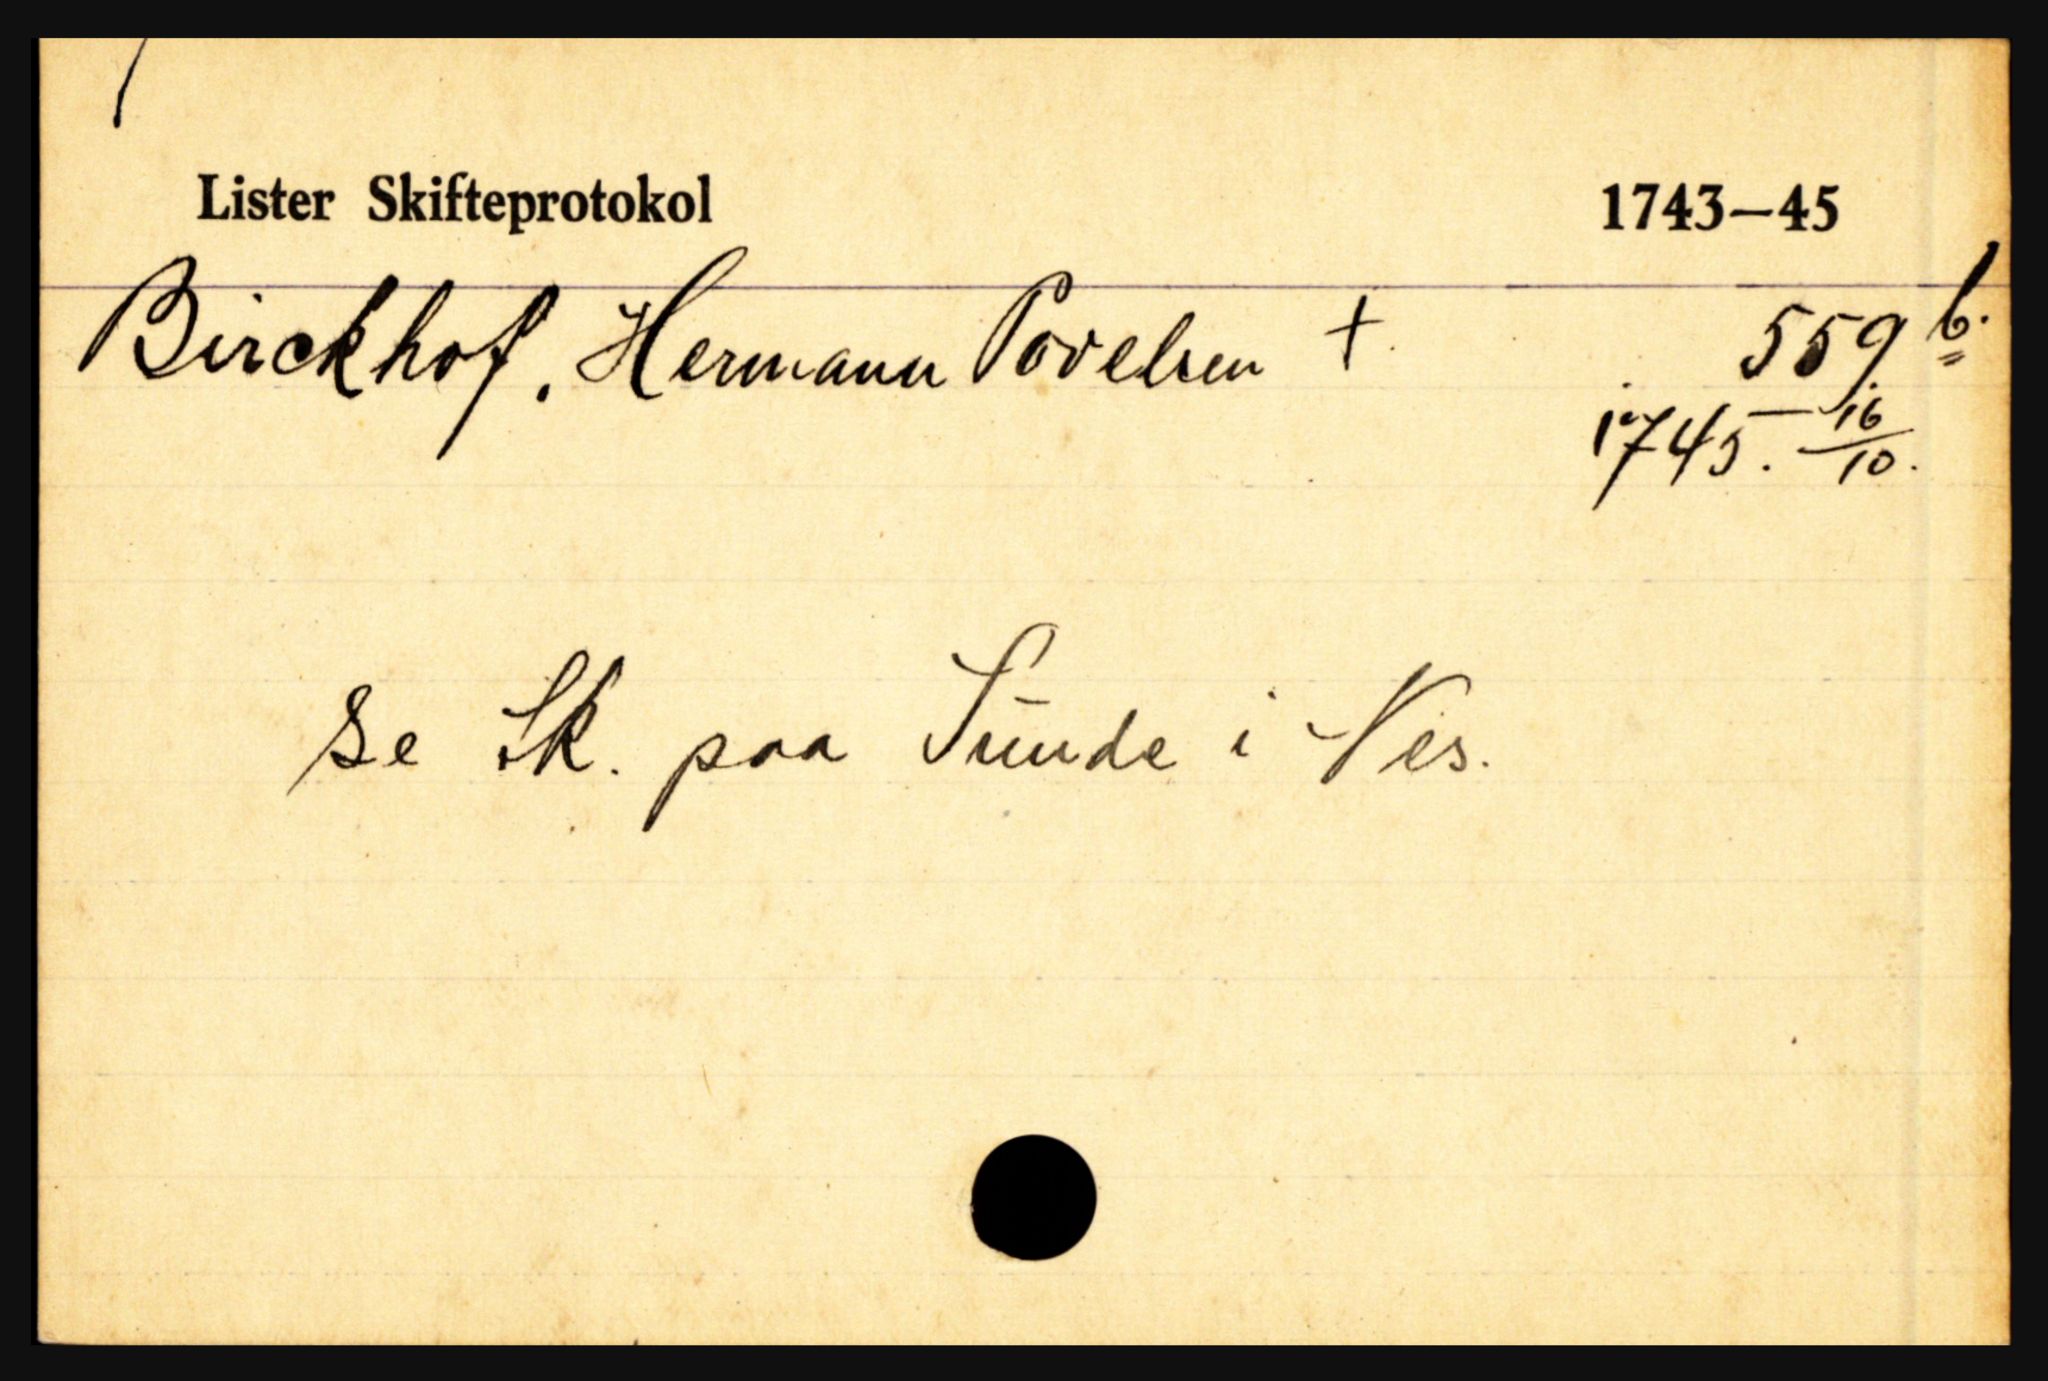 Lister Skifteprotokol 1743–45
Birckhof, Hermann Povelsen + 559 b.
1745. 16/10.
se Sk. paa Sunde i Nes.